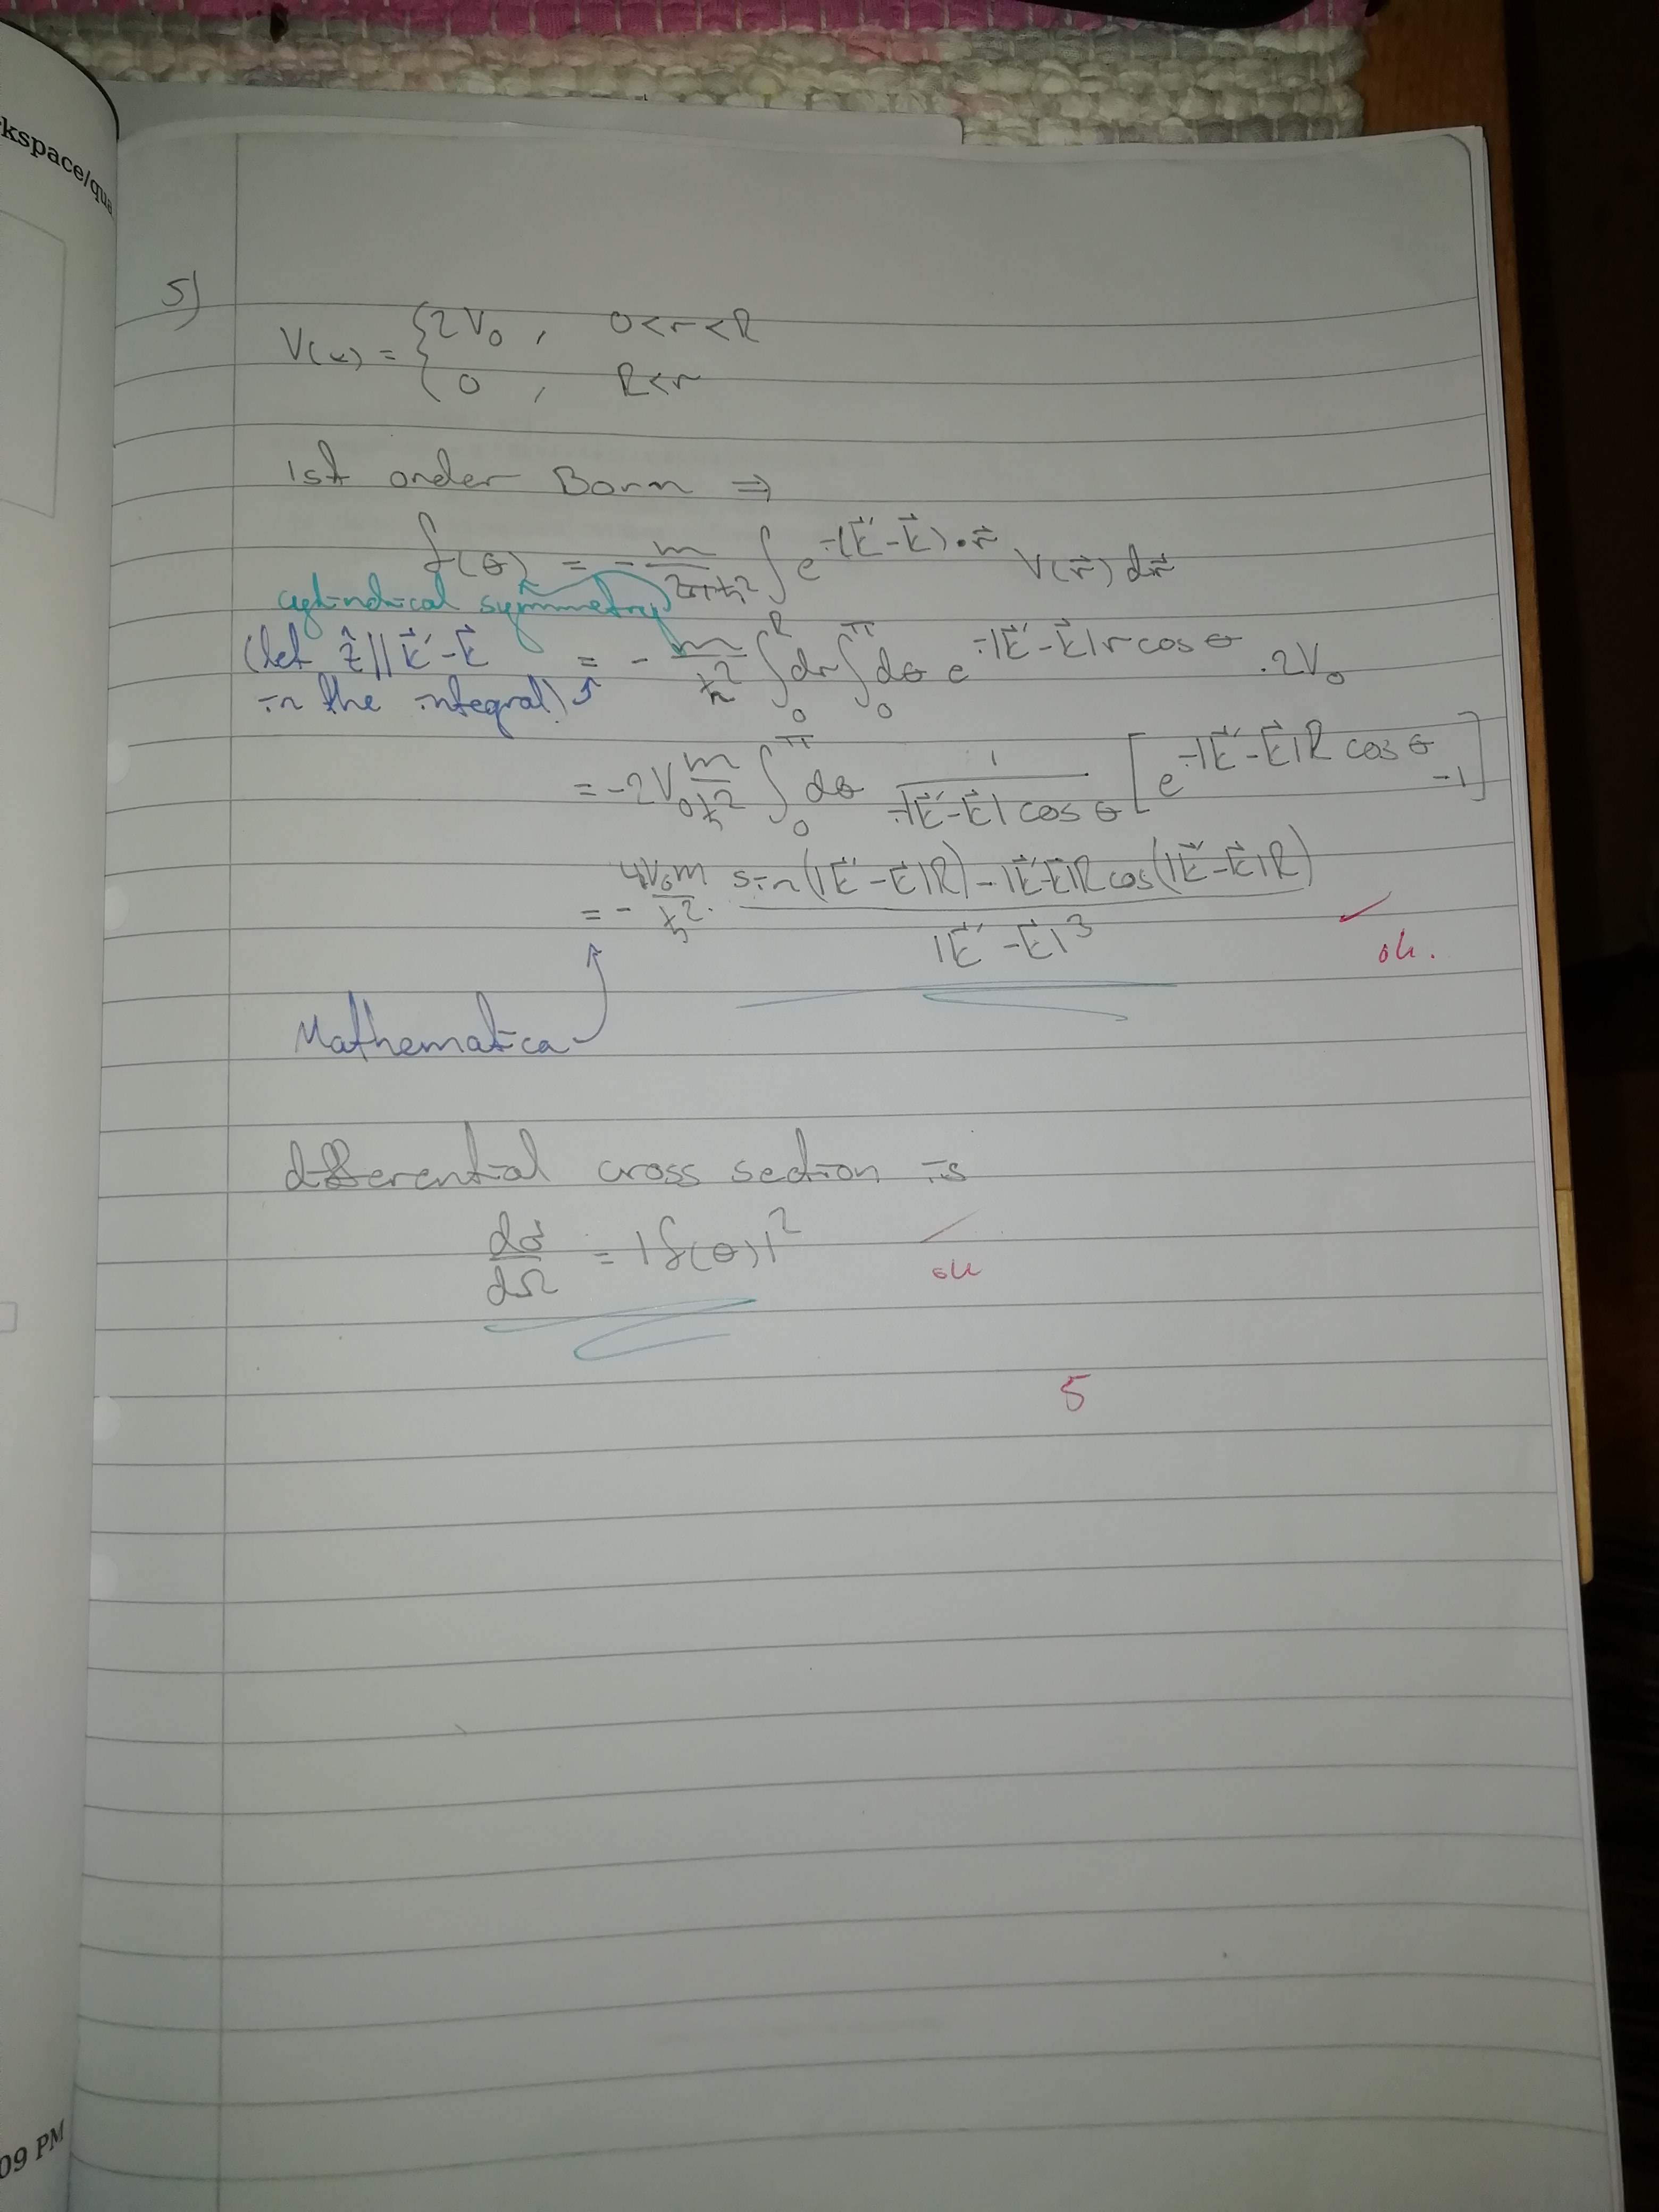 kspace/qua
5)
V(r) = { 2V₀ , 0<r<R
0 , R<r
1st order Born ⇒
f(θ) = - m/2πħ² ∫ e^{i(k⃗'-k⃗)•r⃗} V(r⃗) dr⃗
cylindrical symmetry
(let ẑ || k⃗'-k⃗ = - m/ħ² ∫₀^R dr ∫₀^π dθ e^{i|k⃗'-k⃗|r cos θ} . 2V₀
in the integral)
= -2V₀ m/ħ² ∫₀^π dθ 1/(i|k⃗'-k⃗| cos θ) [e^{i|k⃗'-k⃗|R cos θ} -1]
= - 4V₀m/ħ² . (sin(|k⃗'-k⃗|R) - |k⃗'-k⃗|R cos(|k⃗'-k⃗|R))/|k⃗'-k⃗|³ ✓
ok.
Mathematica
differential cross section is
dσ/dΩ = |f(θ)|² ✓
ok
5
09 PM